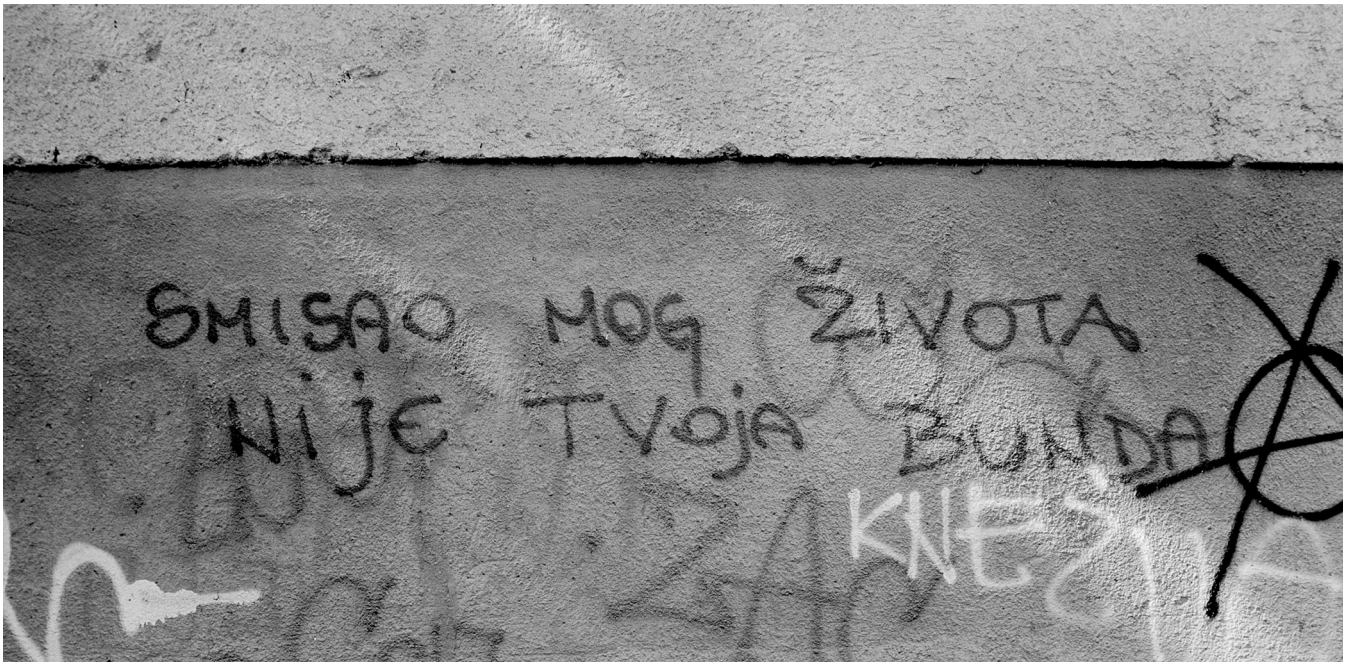 SMISAO MOG ŽIVOTA
NIJE TVOJA BUNDA
KNEŽIJA